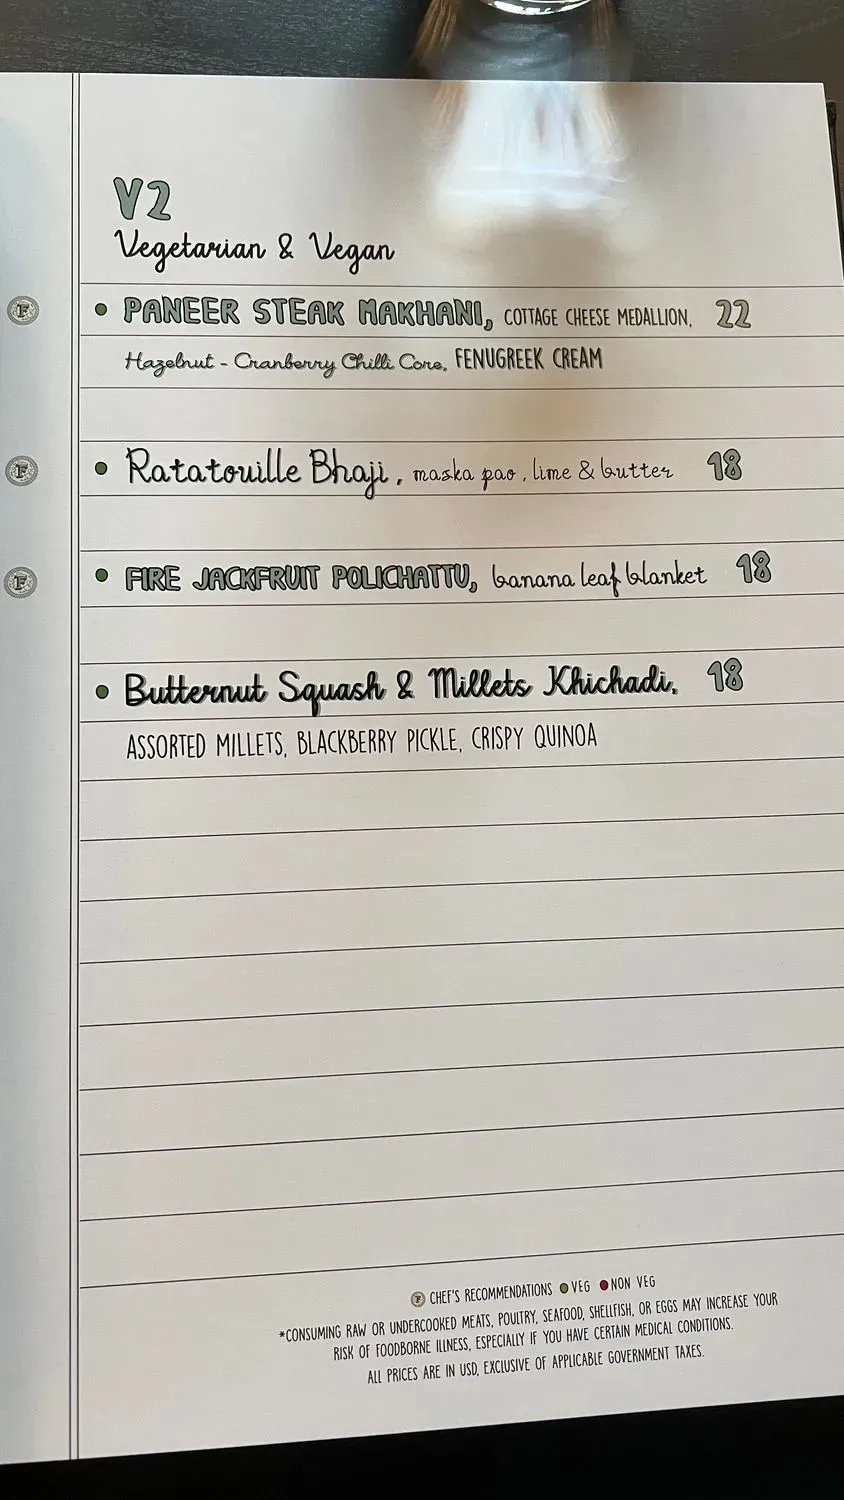 V2
Vegetarian & Vegan
PANEER STEAK MAKHANI, COTTAGE CHEESE MEDALLION, 22
Hazelnut - Cranberry Chilli Core, FENUGREEK CREAM
Ratatouille Bhaji, maska pao, lime & butter 18
FIRE JACKFRUIT POLICHATTU, banana leaf blanket 18
Butternut Squash & Millets Khichadi, 18
ASSORTED MILLETS, BLACKBERRY PICKLE, CRISPY QUINOA
F CHEF'S RECOMMENDATIONS VEG NON VEG
*CONSUMING RAW OR UNDERCOOKED MEATS, POULTRY, SEAFOOD, SHELLFISH, OR EGGS MAY INCREASE YOUR
RISK OF FOODBORNE ILLNESS, ESPECIALLY IF YOU HAVE CERTAIN MEDICAL CONDITIONS.
ALL PRICES ARE IN USD, EXCLUSIVE OF APPLICABLE GOVERNMENT TAXES.